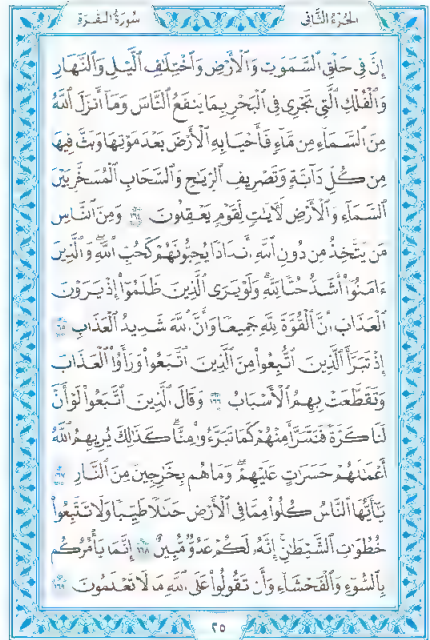 الجزء الثاني سورة البقرة
إِنَّ فِي خَلْقِ السَّمَوَتِ وَالْأَرْضِ وَاخْتِلَفِ الَّيْلِ وَالنَّهَارِ
وَالْفُلْكِ الَّتِي تَجْرِي فِي الْبَحْرِ بِمَا يَنفَعُ النَّاسَ وَمَا أَنزَلَ اللَّهُ
مِنَ السَّمَاءِ مِن مَّاءٍ فَأَحْيَا بِهِ الْأَرْضَ بَعْدَ مَوْتِهَا وَبَثَّ فِيهَا
مِن كُلِّ دَآبَّةٍ وَتَصْرِيفِ الرِّيَحِ وَالسَّحَابِ الْمُسَخَّرِ بَيْنَ
السَّمَاءِ وَالْأَرْضِ لَآيَتٍ لِّقَوْمٍ يَعْقِلُونَ ١٦٤ وَمِنَ النَّاسِ
مَن يَتَّخِذُ مِن دُونِ اللَّهِ أَندَادًا يُحِبُّونَهُمْ كَحُبِّ اللَّهِ وَالَّذِينَ
ءَامَنُوا أَشَدُّ حُبًّا لِّلَّهِ وَلَوْ يَرَى الَّذِينَ ظَلَمُوا إِذْ يَرَوْنَ
الْعَذَابَ أَنَّ الْقُوَّةَ لِلَّهِ جَمِيعًا وَأَنَّ اللَّهَ شَدِيدُ الْعَذَابِ ١٦٥
إِذْ تَبَرَّأَ الَّذِينَ اتُّبِعُوا مِنَ الَّذِينَ اتَّبَعُوا وَرَأَوُا الْعَذَابَ
وَتَقَطَّعَتْ بِهِمُ الْأَسْبَابُ ١٦٦ وَقَالَ الَّذِينَ اتَّبَعُوا لَوْ أَنَّ
لَنَا كَرَّةً فَنَتَبَرَّأَ مِنْهُمْ كَمَا تَبَرَّءُوا مِنَّا كَذَلِكَ يُرِيهِمُ اللَّهُ
أَعْمَلَهُمْ حَسَرَاتٍ عَلَيْهِمْ وَمَا هُم بِخَارِجِينَ مِنَ النَّارِ ١٦٧
يَأَيُّهَا النَّاسُ كُلُوا مِمَّا فِي الْأَرْضِ حَلَلًا طَيِّبًا وَلَا تَتَّبِعُوا
خُطُوَتِ الشَّيْطَنِ إِنَّهُ لَكُمْ عَدُوٌّ مُّبِينٌ ١٦٨ إِنَّمَا يَأْمُرُكُم
بِالسُّوءِ وَالْفَحْشَاءِ وَأَن تَقُولُوا عَلَى اللَّهِ مَا لَا تَعْلَمُونَ ١٦٩
٢٥